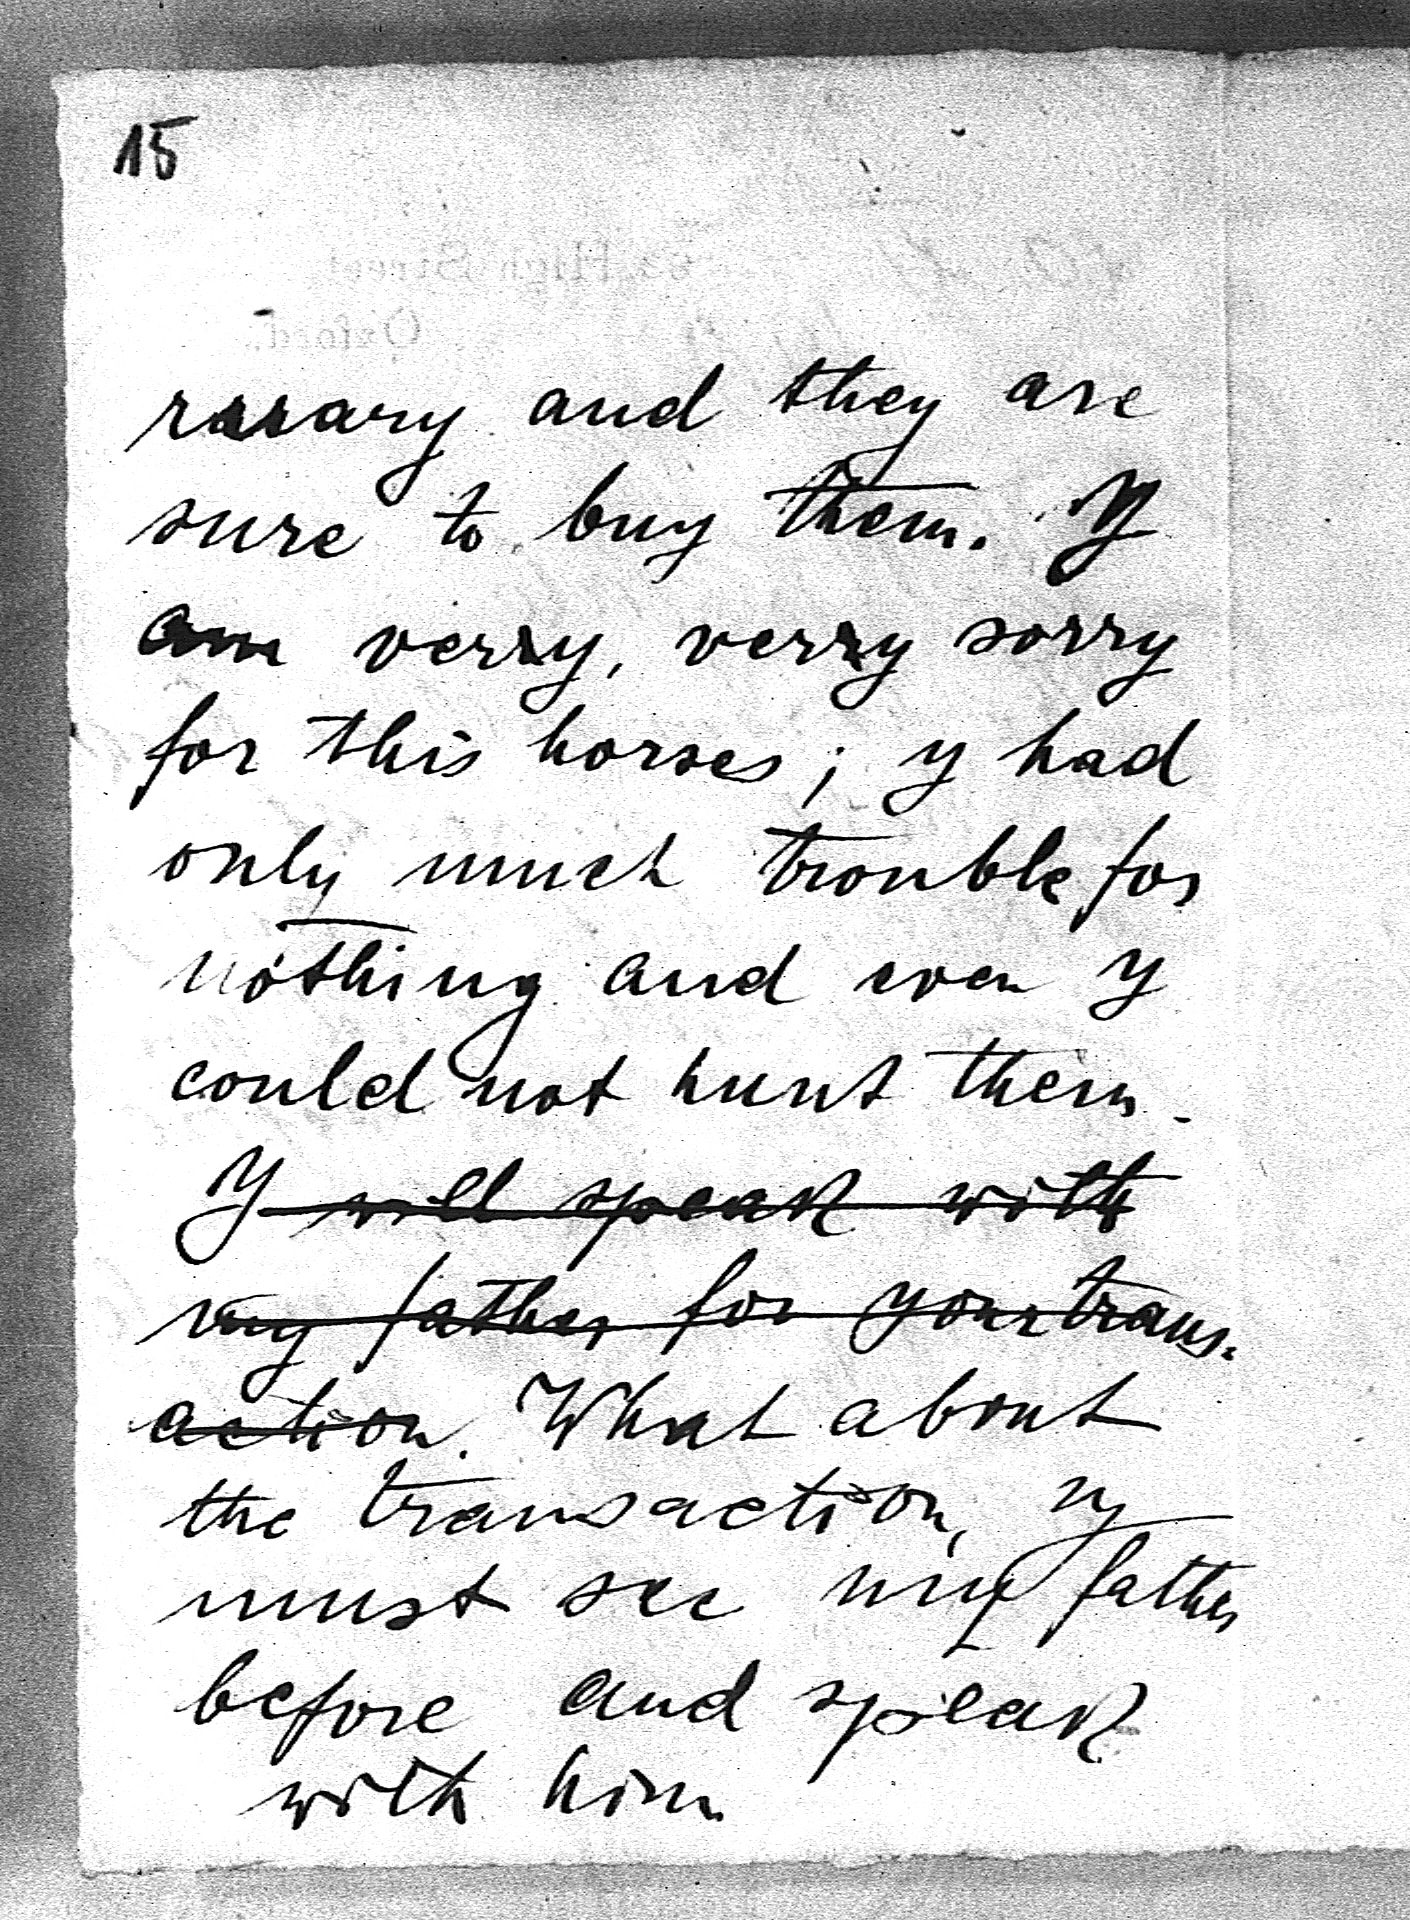 15
and they are
sure to buy them. Y
am verry, verry sorry
for this horses; y had
only much trouble for
nothing and even y
could not hunt them.
Y will speak with
my father for your trans-
action. What about
the transaction, y
must see my father
before and speak
with him